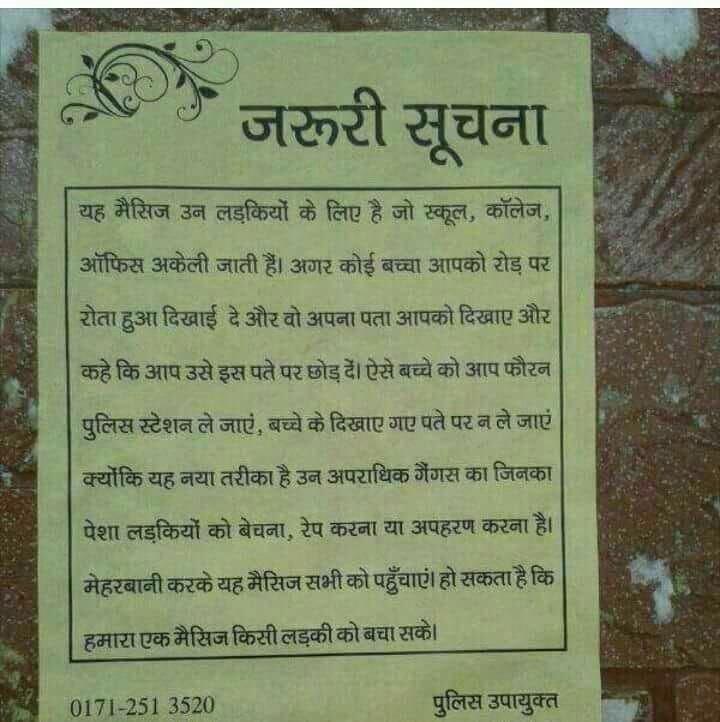 जरूरी सूचना
यह मैसिज उन लड़कियों के लिए है जो स्कूल, कॉलेज,
ऑफिस अकेली जाती हैं। अगर कोई बच्चा आपको रोड़ पर
रोता हुआ दिखाई दे और वो अपना पता आपको दिखाए और
कहे कि आप उसे इस पते पर छोड़ दें। ऐसे बच्चे को आप फौरन
पुलिस स्टेशन ले जाएं, बच्चे के दिखाए गए पते पर न ले जाएं
क्योंकि यह नया तरीका है उन अपराधिक गैंगस का जिनका
पेशा लड़कियों को बेचना, रेप करना या अपहरण करना है।
मेहरबानी करके यह मैसिज सभी को पहुँचाएं। हो सकता है कि
हमारा एक मैसिज किसी लड़की को बचा सके।
0171-251 3520 पुलिस उपायुक्त